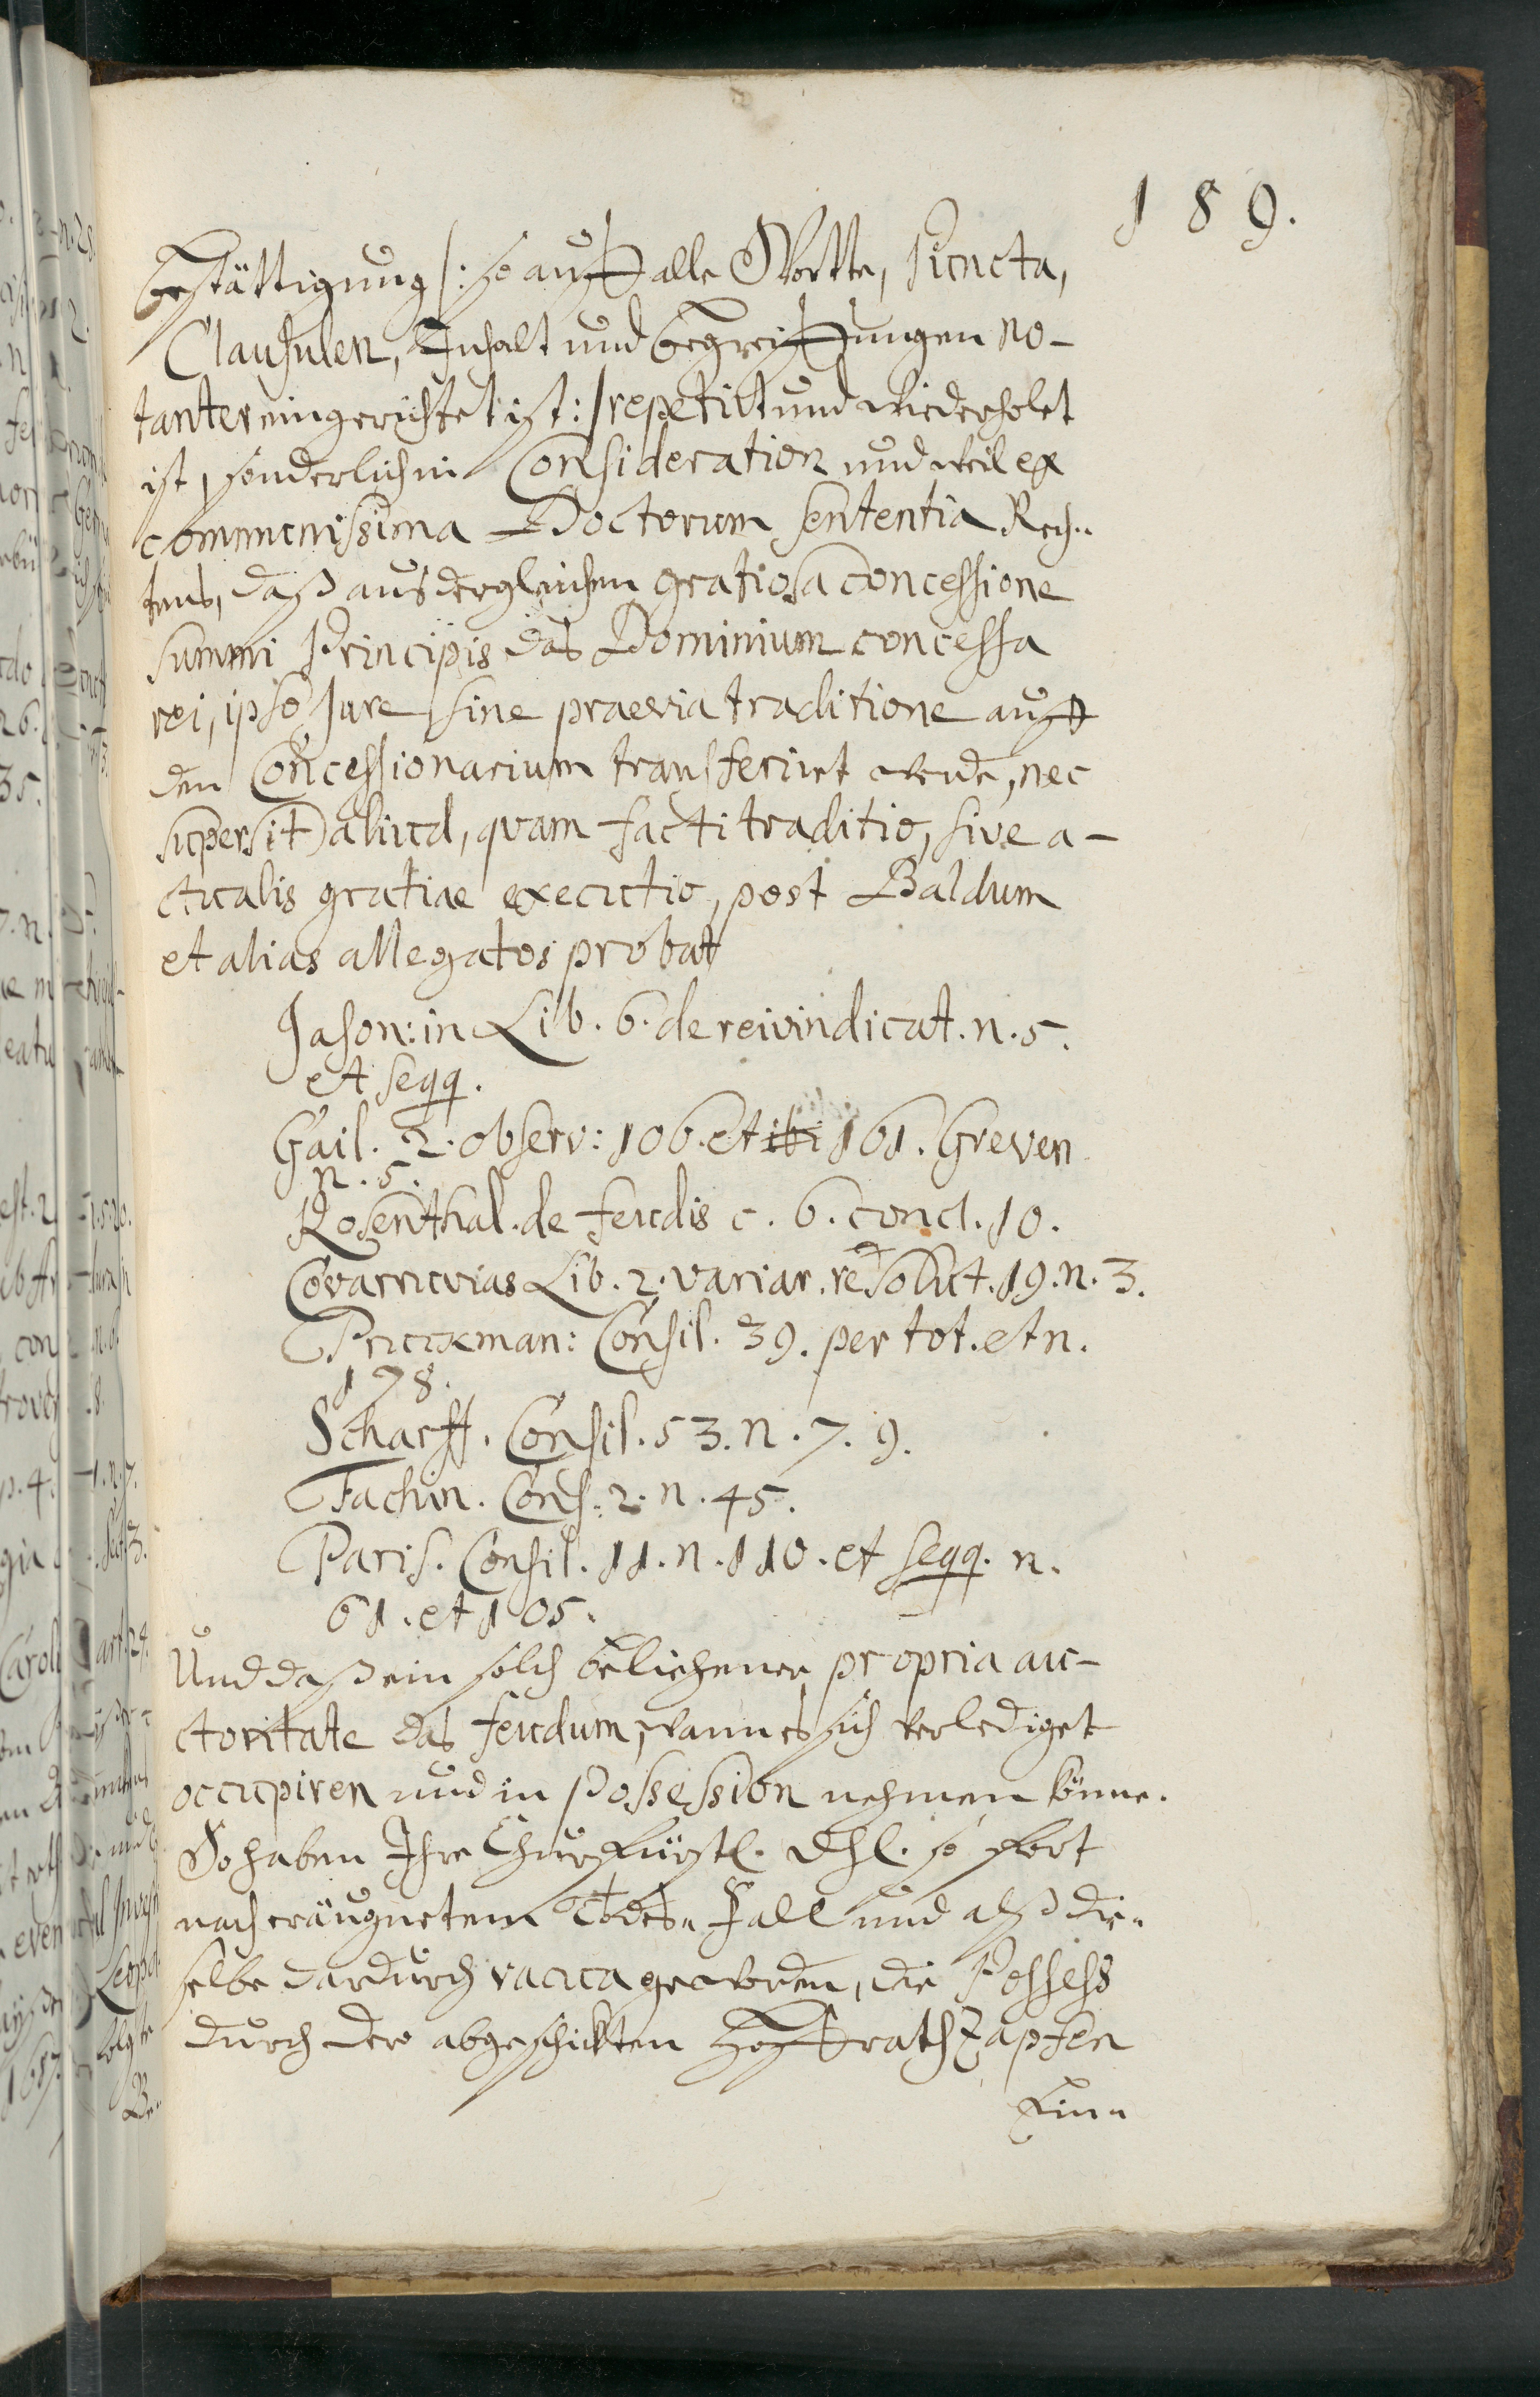 189.
bestättigung /: so auff alle Wortte, Puncta,
Clausulen, Inhalt und begreiffungen no-
tanter eingerichtet ist :/ repetirt und wiederholet
ist, sonderlich in Consideration und weil ex
communissima Doctorum sententia Rech-
tens, daß aus dergleichen gratiosa concessione
summi Principis das Dominium concessa
rei, ipso Jure sine praevia traditione auff
den Concessionarium transferirt werde, nec
supersit aliud, qvam facti traditio, sive a-
ctualis gratiae executio, post Baldum
et alias allegatos probat
Jason: in Lib. 6. de reivindicat. n. 5.
et seqq.
Gail. 2. observ: 106. et ibi 161. Greven
n. 5.
Rosenthal. de feudis c. 6. concl. 10.
Covarruvias Lib. 2. variar. resolut. 19. n. 3.
Pruckman: Consil. 39. per tot. et n.
178.
Scharff. Consil. 53. n. 7. 9.
Fachin. Cons. 2. n. 45.
Paris. Consil. 11. n. 110. et seqq. n.
61. et 105.
Und daß ein solch beliehener propria au-
ctoritate das feudum, wann es sich verlediget
occupiren und in Possession nehmen könne.
So haben Ihre Churfürstl. Dhl. so fort
nach eräugnetem Todes- Fall und alß die-
selbe dardurch vacua geworden, die Possess
durch dero abgeschickten Hoffrath Zapfen
Ein-